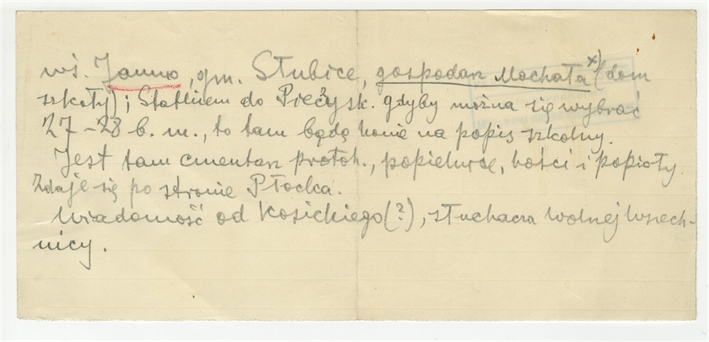 wś. Jamno, gm. Słubice, gospodarz Machała x) (dom
szkoły); Statkiem do Pieczysk. gdyby można się wybrać
27–28 b. m., to tam będę konie na popis szkolny.
Jest tam cmentarz protoh., popielnice, kości i popioły.
Zdaje się po stronie Płocka.
Wiadomość od Kosickiego (?), słuchacza Wolnej Wszech-
nicy.